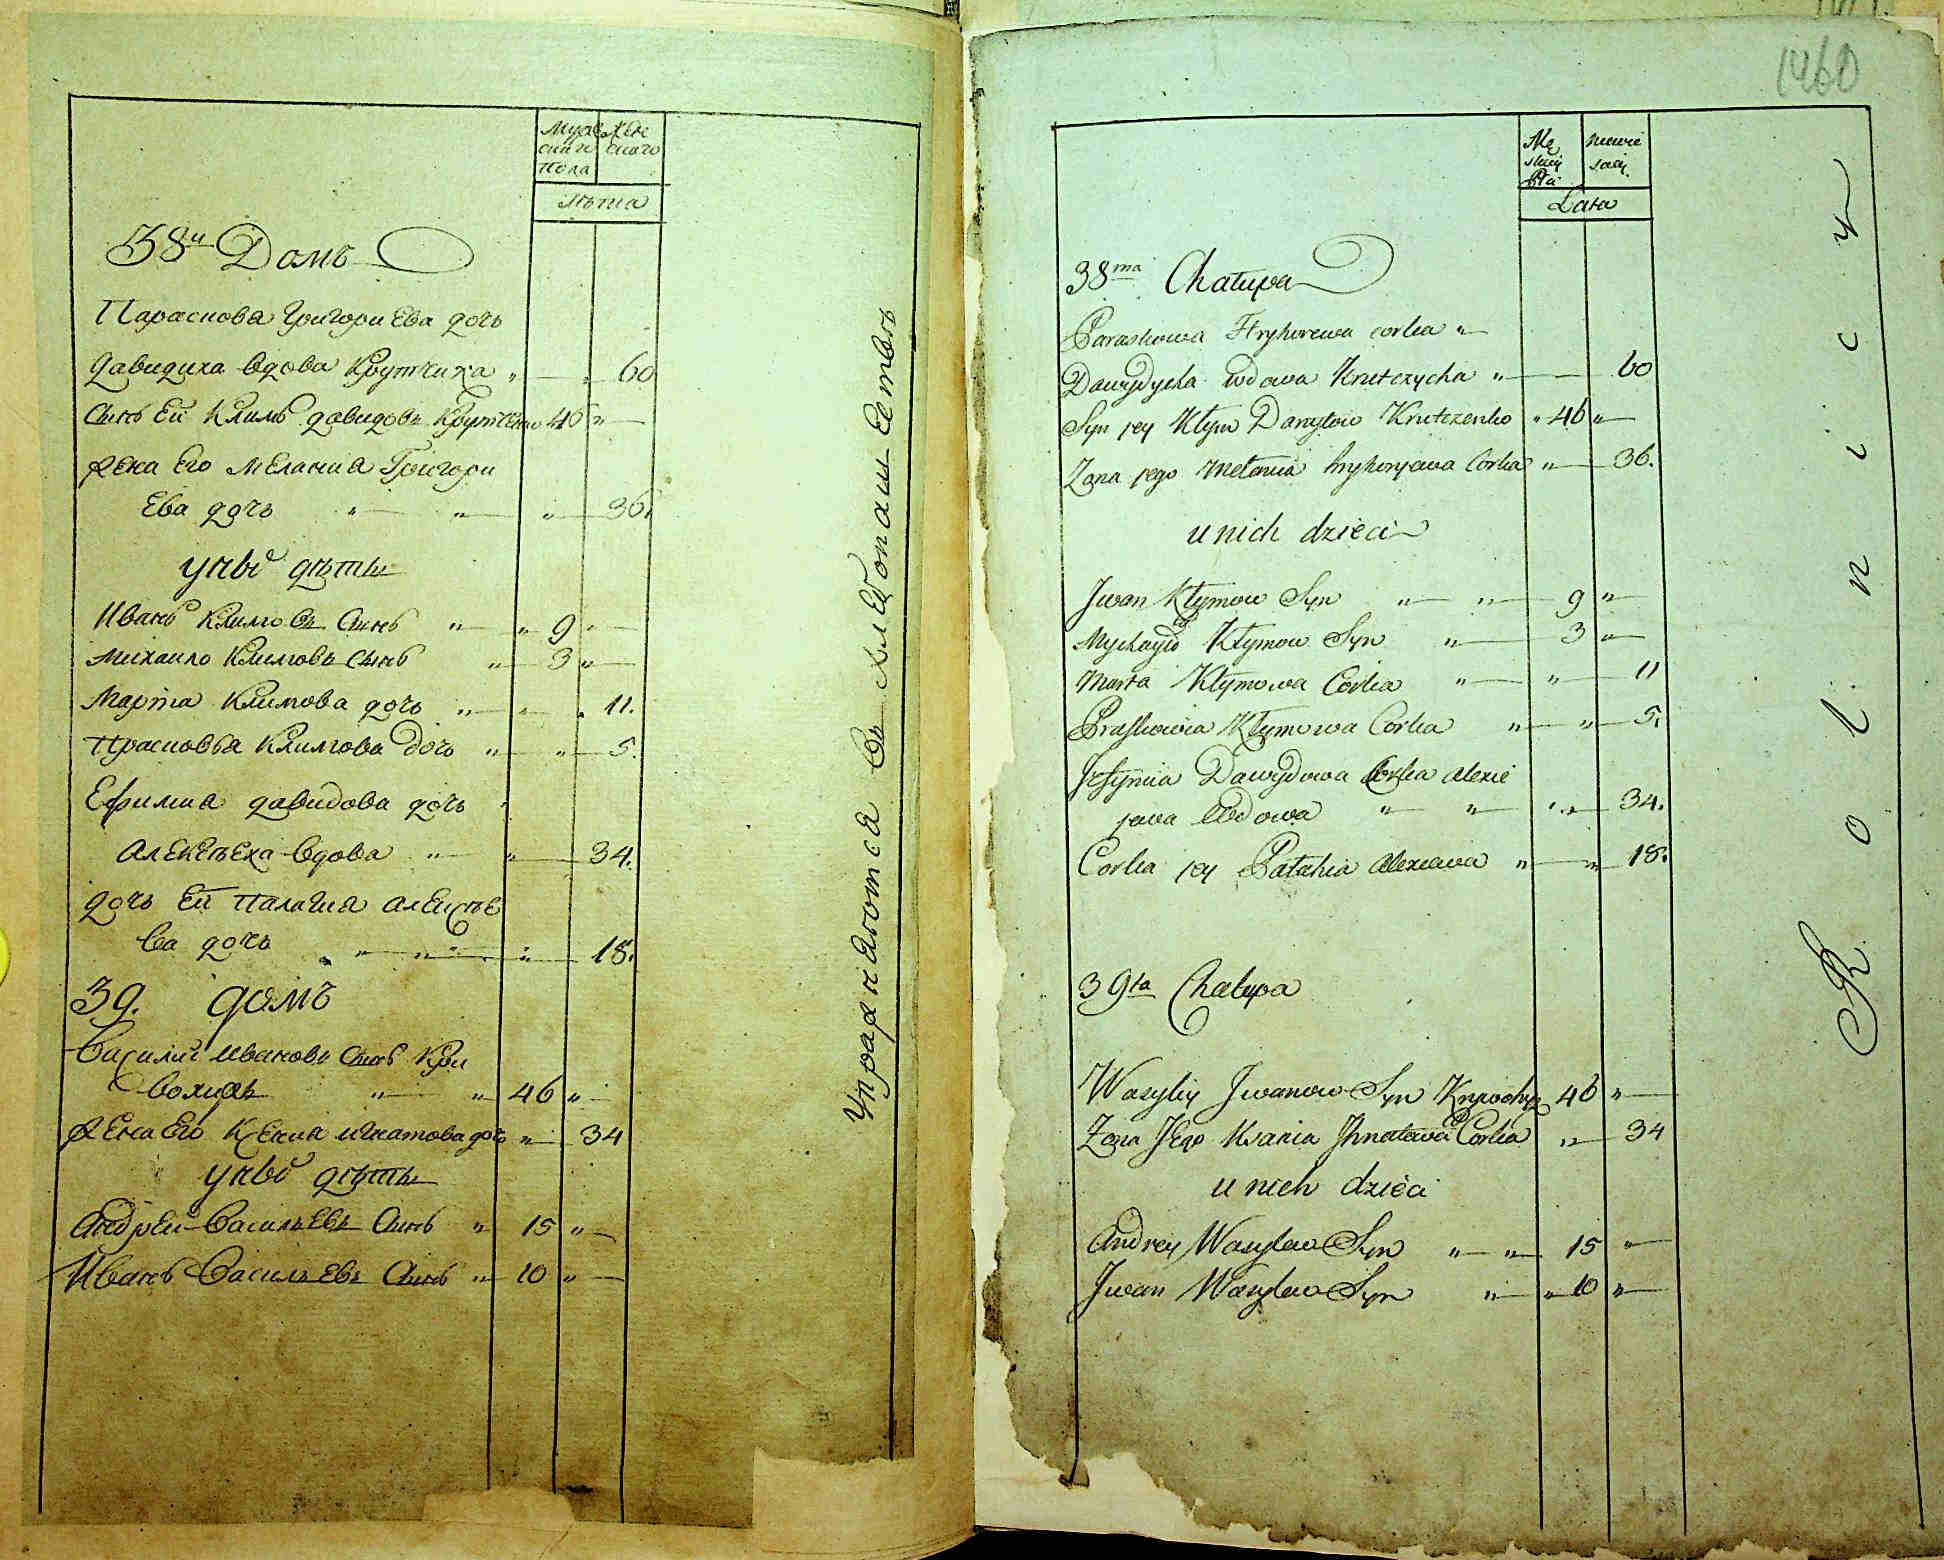 Мужескаго пола
Женскаго
Лѣта
38й Домъ
Параскова Григориева дочь
Давидиха вдова Крутчиха „ „ 60
Сынъ Ей Климъ давидовъ Крутченко 46 „
жена Его Мелания Григори
Ева дочь „ „ „ 36.
унвѣ дѣти
Иванъ Климовъ Сынъ „ „ 9 „
Михаило Климовъ сынъ „ 3 „
Марта Климова дочь „ „ „ 11.
Прасковья Климова дочь „ „ 5.
Ефимиа давидова дочь „
Алексѣеха вдова „ „ 34.
дочь Ей Палагия алексѣе
ва дочь „ „ „ „ 18.
39. домъ
Василий Ивановъ Сынъ Кри
вохижъ „ „ 46 „
жена Его Ксения игнатова дочь „ 34
унвѣ дѣти
Андрей Васильевъ Сынъ „ 15 „
Иванъ Васильевъ Сынъ „ 10 „
Упражняютса въ хлѣбопашествѣ
1460
Męskiej Płci
niewiesciej
Lata
38ma Chałupa
Paraskowia Hryhorewa corka „
Dawydycha wdowa Krutczycha „ 60
Syn jey Kłym Danyłow Krutczenko „ 46 „
Zona jego Mełania hryhoryewa Corka „ 36.
u nich dzieci
Jwan Kłymow Syn „ „ 9 „
Mychayło Kłymow Syn „ 3 „
Marta Kłymowa Corka „ „ 11
Praskowia Kłymowa Corka „ „ 5.
Jefymia Dawydowa Corka alexie
jewa Wdowa „ „ „ „ 34.
Corka jey Pałahia alexiewa „ „ 18.
39ta Chałupa
Wasyliy Jwanow Syn Krywochyż 46 „
Zona Jego Ksenia Jhnatowa Corka „ 34
u nich dzieci
Andrey Wasylew Syn „ „ 15 „
Jwan Wasylew Syn „ „ 10 „
Rolnicy